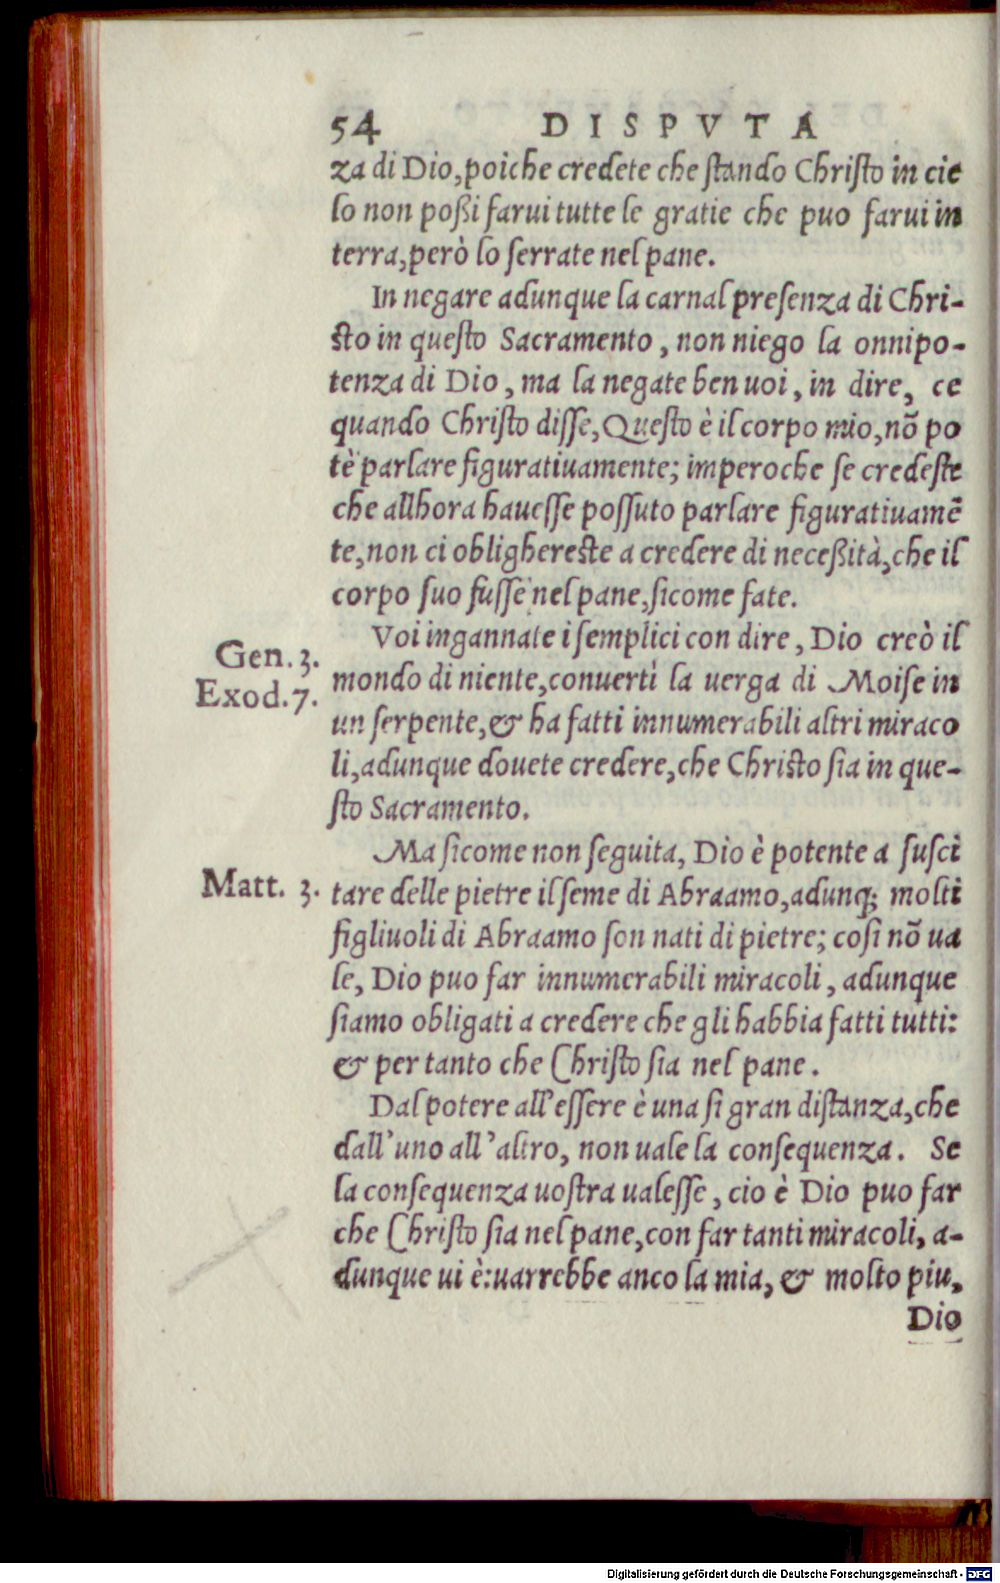 54 DISPVTA
za di Dio, poiche credete che ſtando Chriſto in cie
lo non poßi farui tutte le gratie che puo farui in
terra, però lo ſerrate nel pane.
In negare adunque la carnal preſenza di Chri-
ſto in queſto Sacramento, non niego la onnipo-
tenza di Dio, ma la negate ben uoi, in dire, ce
quando Chriſto diſſe, Queſto è il corpo mio, nõ po
tè parlare figuratiuamente; imperoche ſe credeſte
che allhora haueſſe poſſuto parlare figuratiuamẽ
te, non ci oblighereſte a credere di neceßità, che il
corpo ſuo fuſſe nel pane, ſicome fate.
Voi ingannate i ſemplici con dire, Dio creò il
Gen. 3.
mondo di niente, conuertì la uerga di Moiſe in
Exod. 7.
un ſerpente, & ha fatti innumerabili altri miraco
li, adunque douete credere, che Chriſto ſia in que-
ſto Sacramento.
Ma ſicome non ſeguita, Dio è potente a ſuſci
Matt. 3.
tare delle pietre il ſeme di Abraamo, adunq; molti
figliuoli di Abraamo ſon nati di pietre; coſi nõ ua
le, Dio puo far innumerabili miracoli, adunque
ſiamo obligati a credere che gli habbia fatti tutti:
& per tanto che Chriſto ſia nel pane.
Dal potere all'eſſere è una ſi gran diſtanza, che
dall'uno all'altro, non uale la conſequenza. Se
la conſequenza uoſtra ualeſſe, cio è Dio puo far
che Chriſto ſia nel pane, con far tanti miracoli, a-
dunque ui è: uarrebbe anco la mia, & molto piu,
Dio
Digitalisierung gefördert durch die Deutsche Forschungsgemeinschaft - DFG